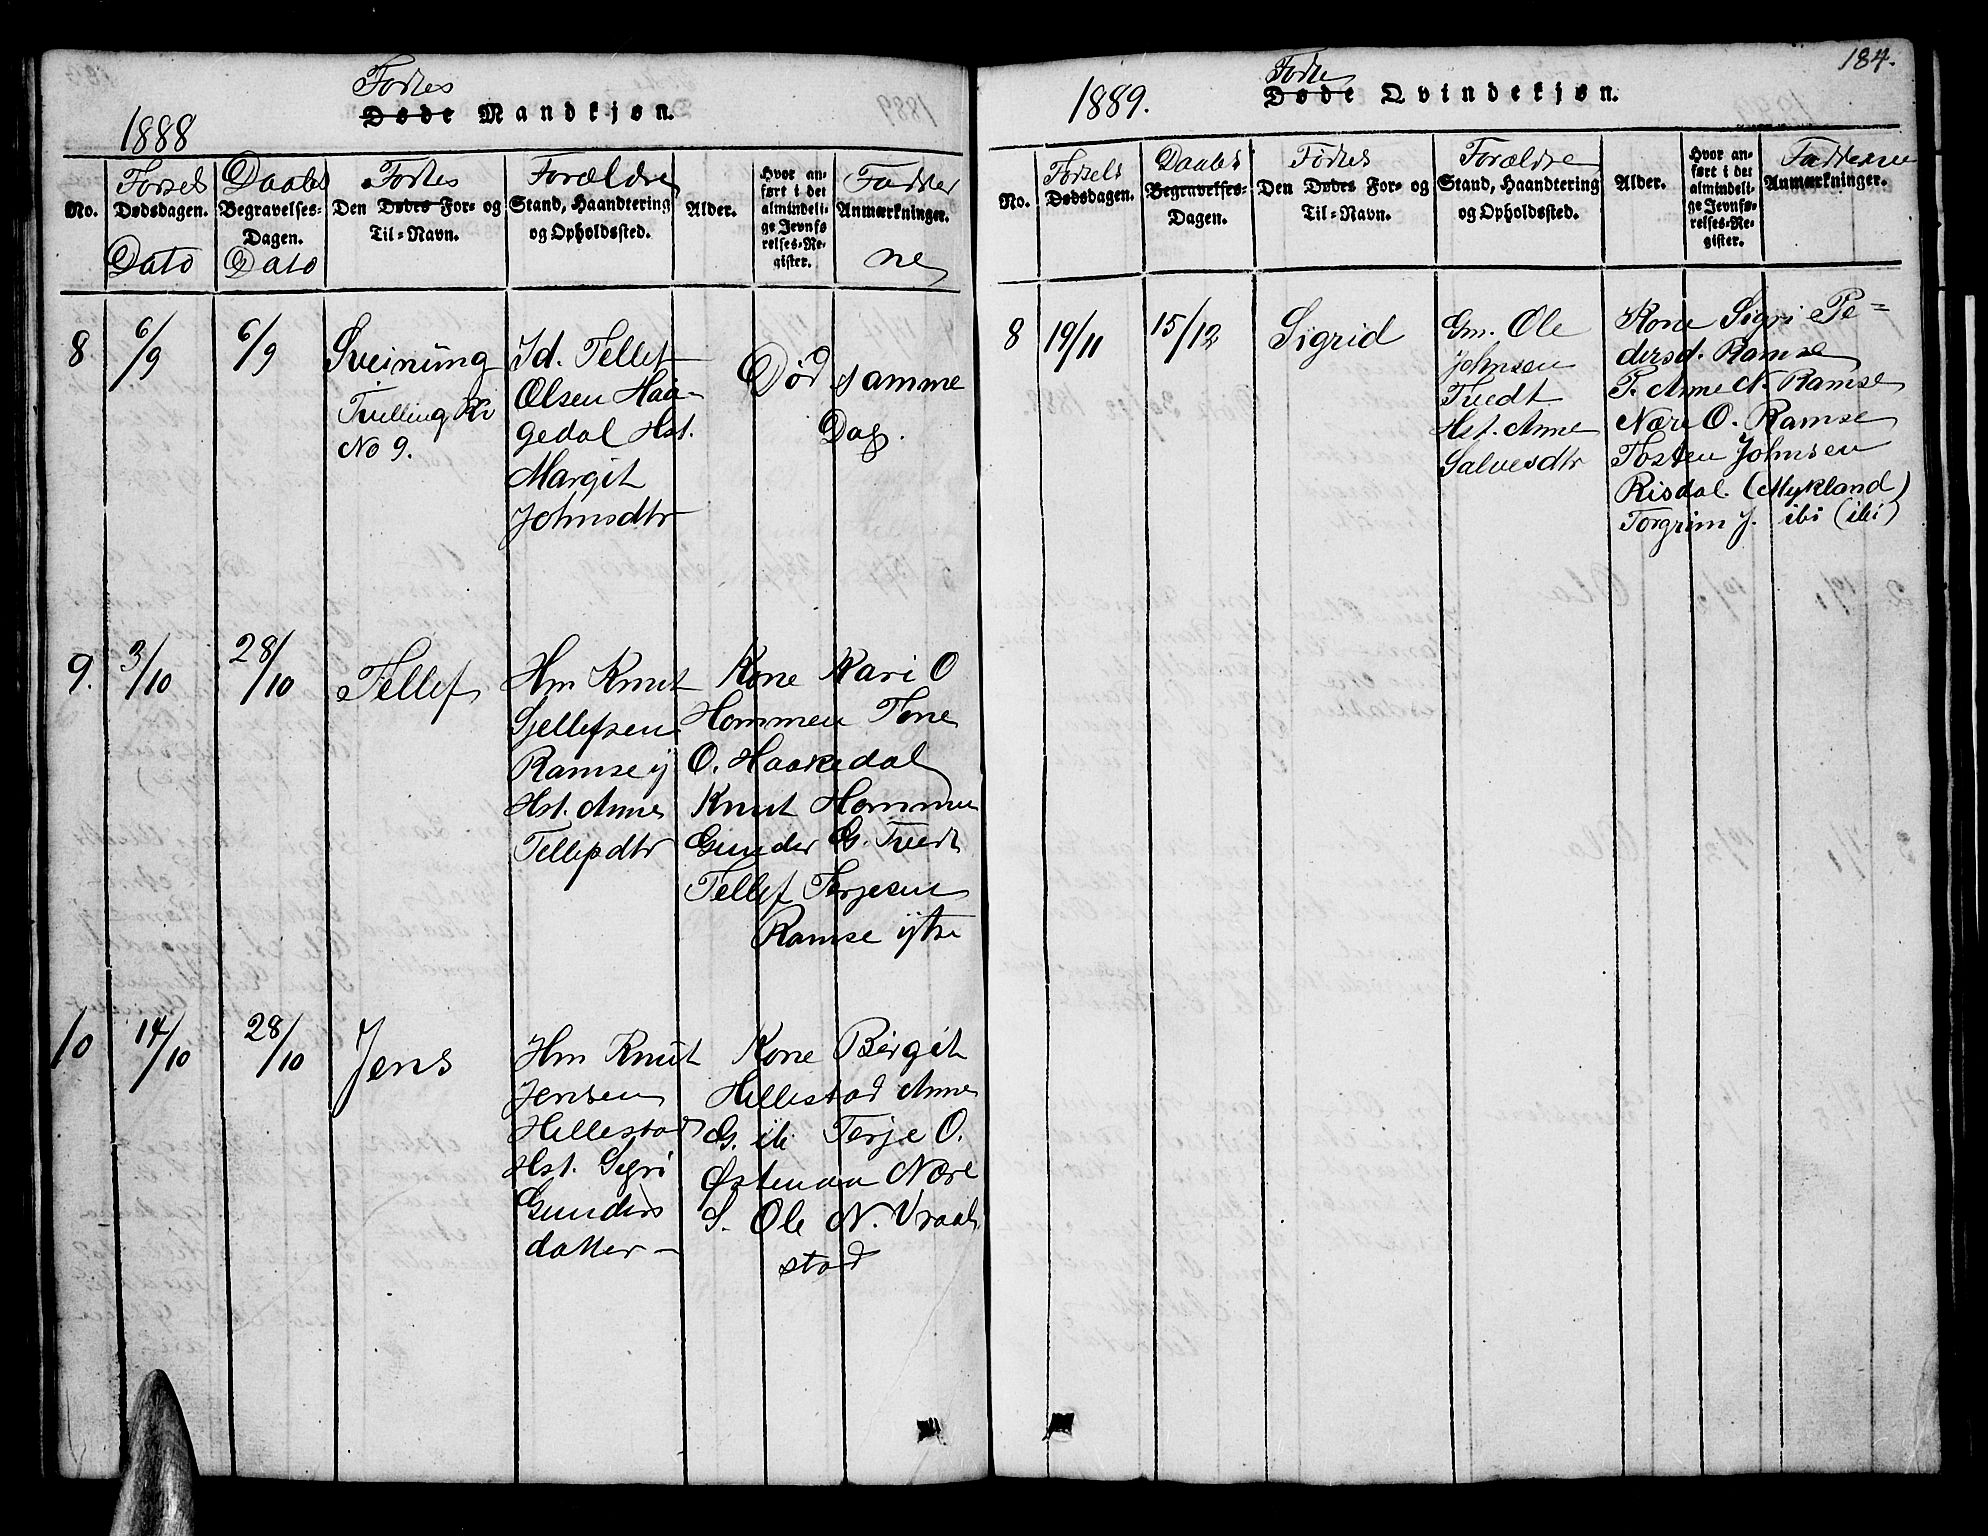 Fødtes
Døde Mandkjøn.
1888
No.
Fødsels
Dødsdagen.
Dato
Daabs
Begravelses-
Dagen.
Dato
Fødtes
Den Dødes For- og
Til-Navn.
Forældre
Stand, Haandtering
og Opholdssted.
Alder.
Hvor an-
ført i det
almindeli-
ge Jevnfø
relses-Re-
gister.
Fadder
Anmærkninger.
ne
8 6/9 6/9
Sveinung
Tvilling
No 9.
Id. Tellef
Olsen Haa-
gedal Hst.
Margit
Johnsdtr
Død samme
Dag.
9. 3/10 28/10
Tellef
Hm Knut
Tellefsen
Ramse y
Hst. Anne
Tellefsdtr
Kone Kari O
Hommen Tone
O. Haakedal
Knut Hommen
Gunder G. Tvedt
Tellef Terjesen
Ramse ytre
10 14/10 28/10
Jens
Hm Knut
Jensen
Hillestad
Hst. Sigri
Gunders
datter
Kone Birgit
Hillestad Anne
G. ib. Terje O.
Østenaa Nære
S. Ole N. Vraal
stad
184.
Fødte
Døde Qvindekjøn.
1889.
No.
Fødsels
Dødsdagen.
Daabs
Begravelses-
Dagen.
Fødtes
Den Dødes For- og
Til-Navn.
Forældre
Stand, Haandtering
og Opholdssted.
Alder.
Hvor an-
ført i det
almindeli-
ge Jevnfø-
relses-Re-
gister.
Fadderne
Anmærkninger.
8 19/11 15/12
Sigrid
Gm. Ole
Johnsen
Tvedt
Hst. Anne
Salvesdtr
Kone Sigri Pe-
dersd. Ramse
P. Anne N. Ramse
Nære O. Ramse
Tosten Johnsen
Risdal (Mykland)
Torgrim J. ibi (ibi)